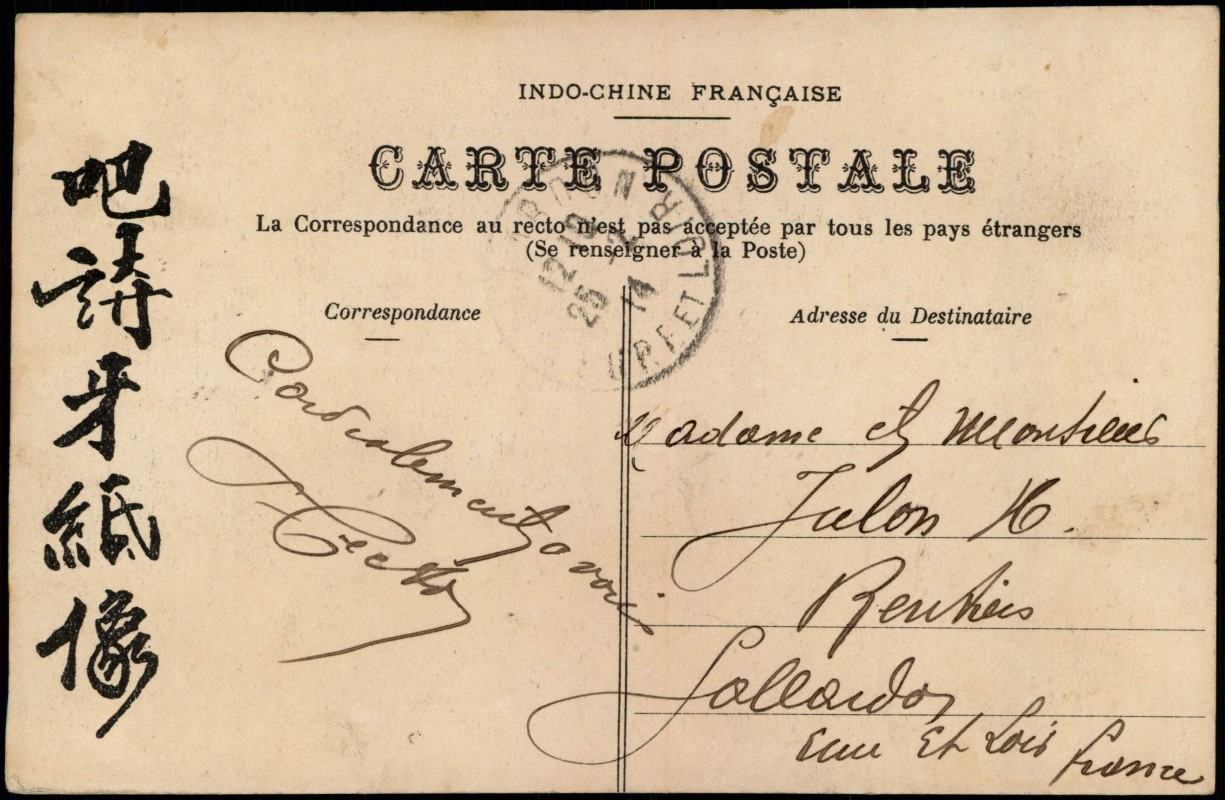 INDO-CHINE FRANÇAISE
CARTE POSTALE
La Correspondance au recto n'est pas acceptée par tous les pays étrangers
(Se renseigner à la Poste)
吧
請
牙
紙
像
Correspondance
Cordialement à vous
Adresse du Destinataire
Madame et Monsieur
Julon H.
Rentiers
Gallardon
Eure et Loir France
EURE ET LOIR
12
25 2 14